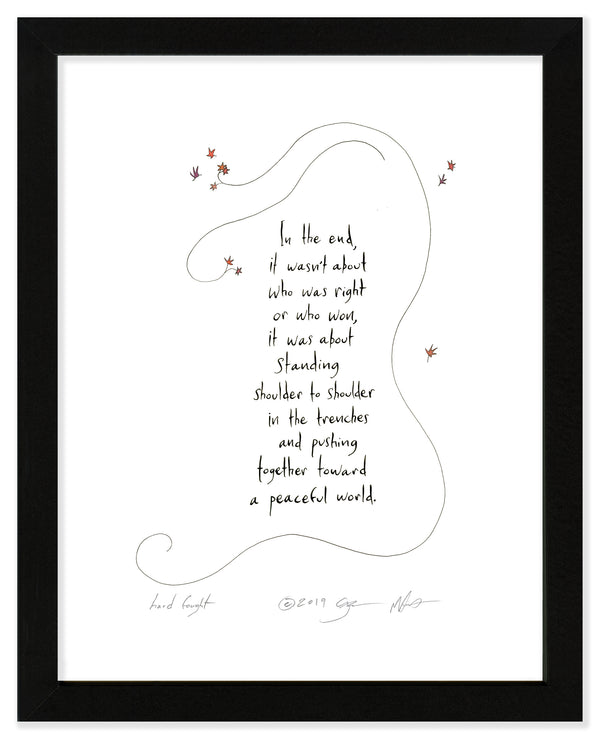 In the end,
it wasn't about
who was right
or who won,
it was about
standing
shoulder to shoulder
in the trenches
and pushing
together toward
a peaceful world.
hard fought ©2019